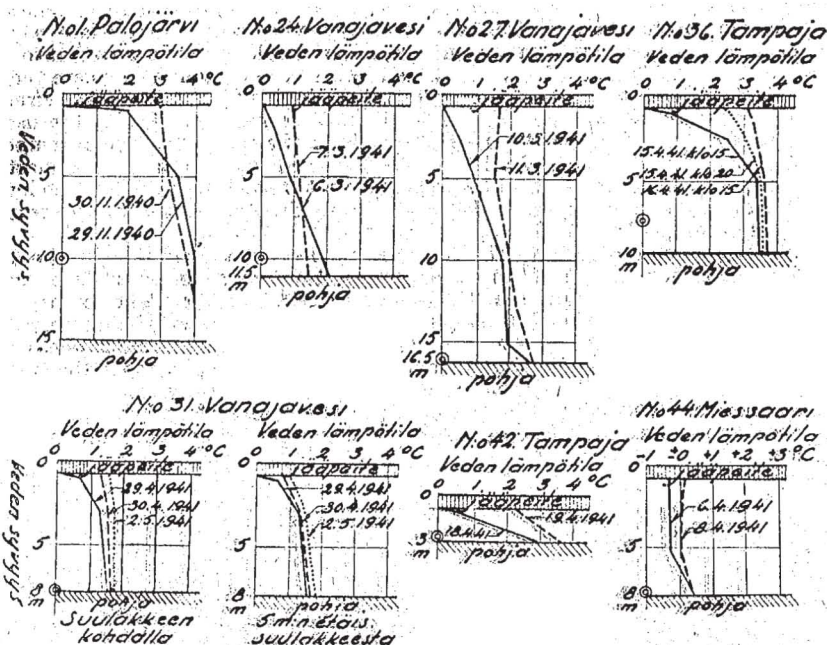 N:o1. Palojärvi
Veden lämpötila
0 1 2 3 4°C
0
Jääpeite
5
30.11.1940
29.11.1940
10
15
pohja
Veden syvyys
N:o24. Vanajavesi
Veden lämpötila
0 1 2 3 4°C
0
Jääpeite
7.3.1941
5
6.3.1941
10
11.5
m
pohja
N:o27. Vanajavesi
Veden lämpötila
0 1 2 3 4°C
0
Jääpeite
10.3.1941
11.3.1941
5
10
15
16.5
m
pohja
N:o36. Tampaja
Veden lämpötila
0 1 2 3 4°C
0
Jääpeite
15.4.41. klo 15
15.4.41. klo 20
16.4.41. klo 15
5
10
m
pohja
N:o 31. Vanajavesi
Veden lämpötila
0 1 2 3 4°C
0
Jääpeite
29.4.1941
30.4.1941
2.5.1941
5
8
m
pohja
Veden syvyys
Suulakkeen
kohdalla
Veden lämpötila
0 1 2 3 4°C
0
Jääpeite
29.4.1941
30.4.1941
2.5.1941
5
8
m
pohja
5 m:n etäis.
suulakkeesta
N:o42. Tampaja
Veden lämpötila
0 1 2 3 4°C
0
Jääpeite
19.4.1941
18.4.41
3
m
pohja
N:o44. Miessaari
Veden lämpötila
-1 ±0 +1 +2 +3°C
0
Jääpeite
6.4.1941
8.4.1941
5
8
m
pohja